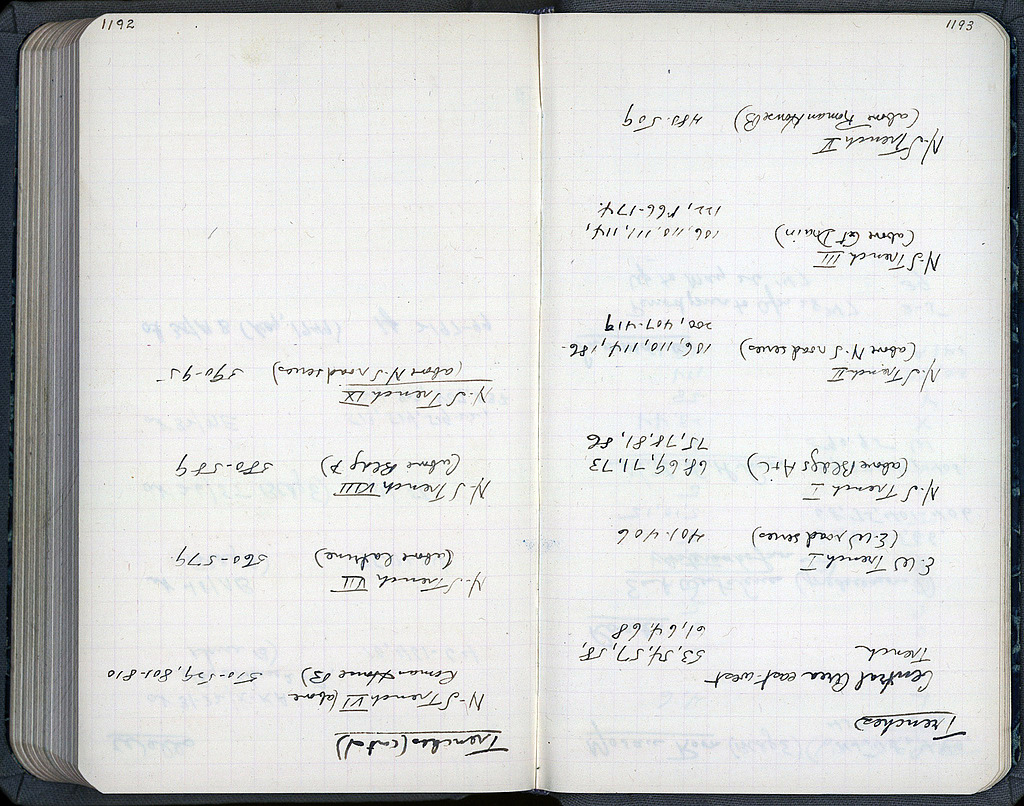 1193
Trenches
Central Area east-west
Trench 53, 54, 57, 58,
61, 64, 68
E-W Trench I
(E-W road series) 401-406
N-S Trench I
(above Bldgs A+C) 68, 69, 71, 73,
75, 78, 81, 86
N-S Trench II
(above N-S road series) 106, 110, 114, 186-
200, 407-419
N-S Trench III
(above Gt Drain) 106, 110, 111, 114,
122, 166-174.
N-S Trench V
(above Roman House B) 485-509
1192
Trenches (cont'd)
N-S Trench VI (above
Roman House B) 510-559, 801-810
N-S Trench VII
(above Latrine) 560-579
N-S Trench VIII
(above Bldg) 580-589
N-S Trench IX
(above N-S road series) 590-95